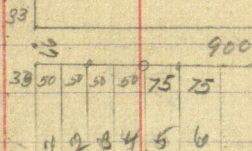 33
33
900
33 50 50 50 50 75 75
1 2 3 4 5 6